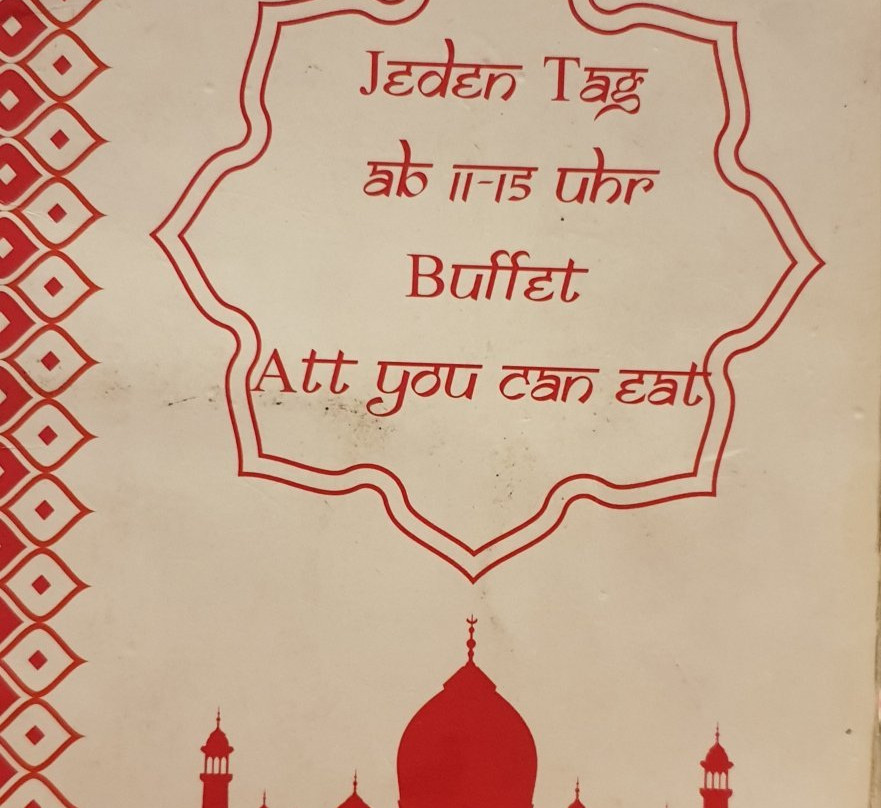 Jeden Tag
ab 11-15 uhr
Buffet
Att you can eat